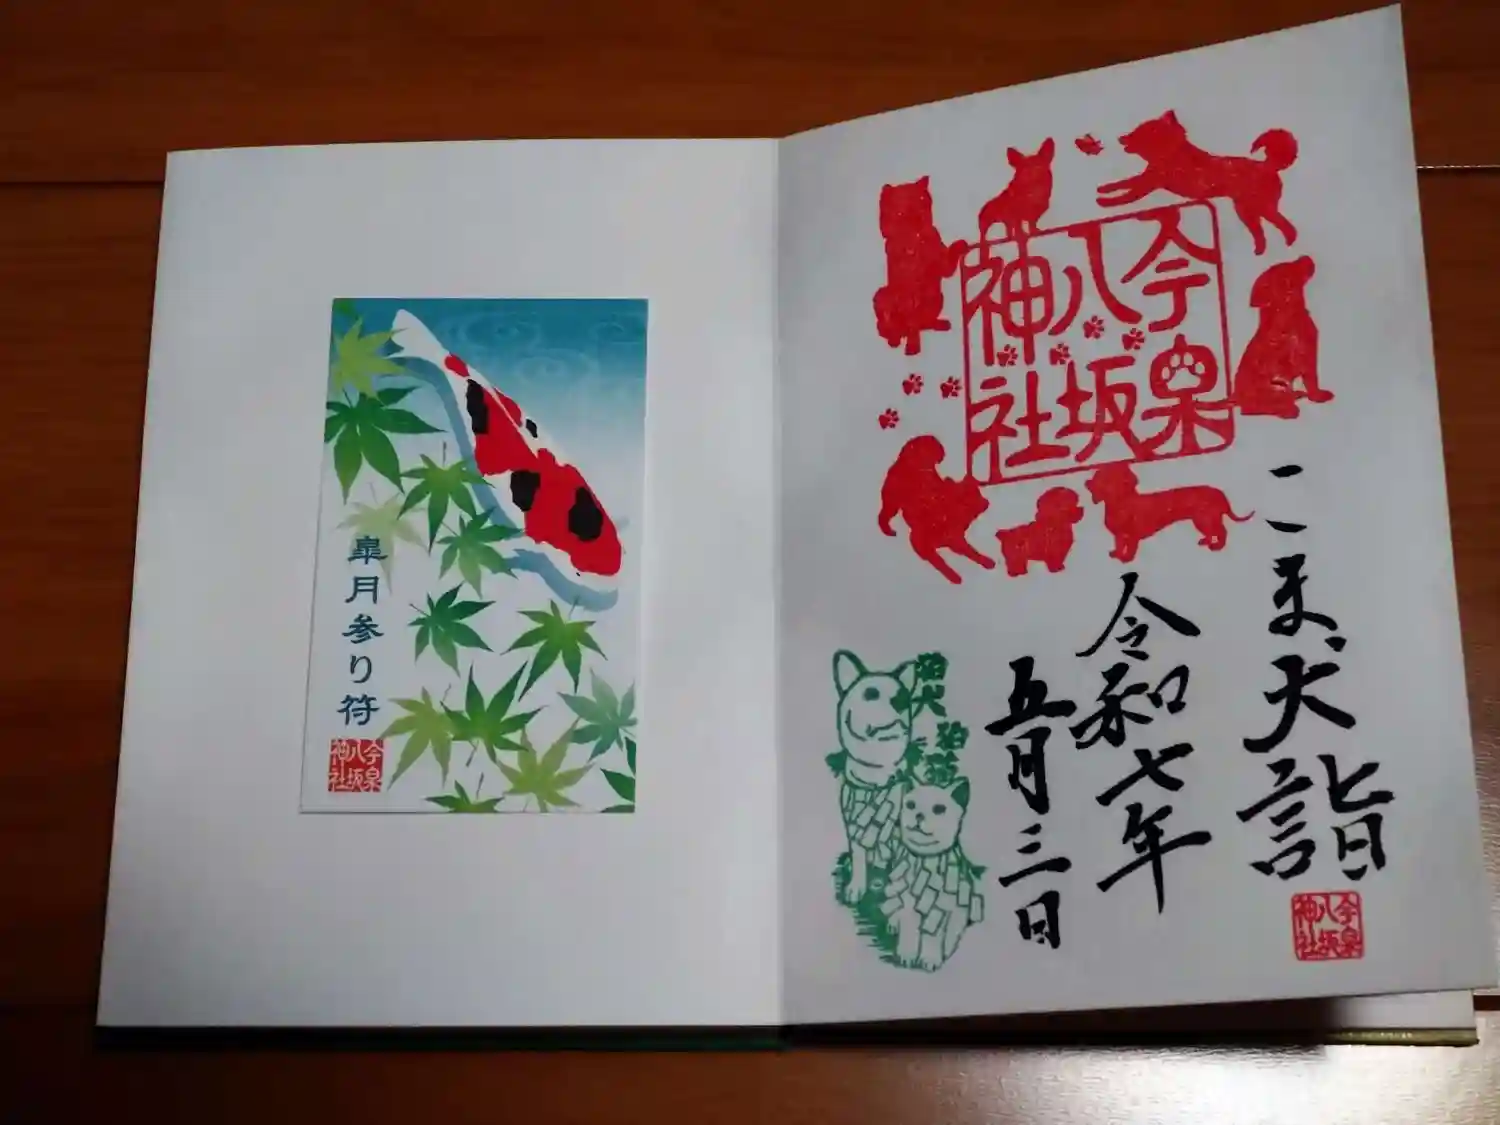 今泉
八坂
神社
こま犬詣
令和七年
五月三日
今泉
八坂
神社
狛犬
狛猫
皐月参り符
今泉
八坂
神社